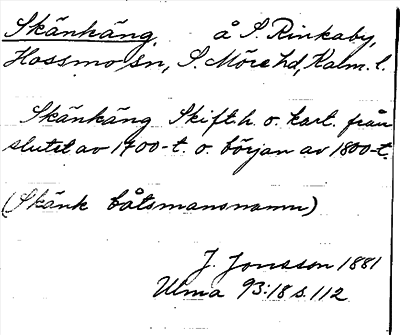 Skänkäng, å S. Rinkaby,
Hossmo sn, S. Möre hd, Kalm. l.
Skänkäng Skift.h. o. kart. från
slutet av 1700-t. o. början av 1800-t.
(Skänk båtsmansnamn)
J. Jonsson 1881
Ulma 93:18 s. 112